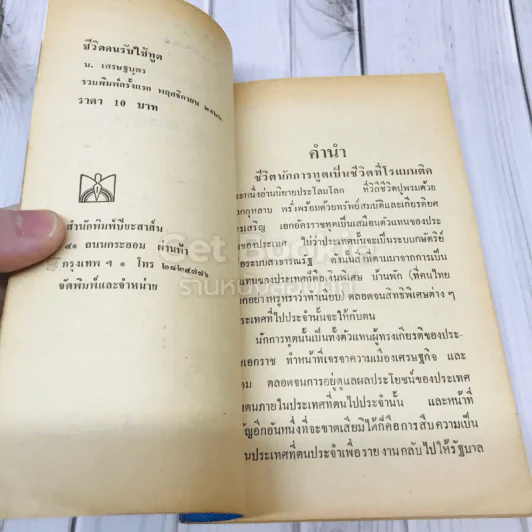 ชีวิตคนรับใช้ทูต
น. เศรษฐบุตร
รวมพิมพ์ครั้งแรก พฤศจิกายน
ราคา 10 บาท
สำนักพิมพ์ปิยะสาส์น
ถนนกระออม ผ่านฟ้า
กรุงเทพ ฯ ๑ โทร
จัดพิมพ์และจำหน่าย
คำนำ
ชีวิตนักการทูตเป็นชีวิตที่โรแมนติค
อ่านนิยายประโลมโลก ที่วิถีชีวิตปูพรมด้วย
กุหลาบ พรั่งพร้อมด้วยทรัพย์สมบัติและเกียรติยศ
สรรเสริญ เอกอัครราชทูตเป็นเสมือนตัวแทนของประ
ของประเทศ ไม่ว่าประเทศนั้นจะเป็นระบบกษัตริย์
ระบบสาธารณรัฐ ดังนั้นสิ่งที่ตามมาจากการเป็น
แทนของประเทศก็คือเงินพิเศษ บ้านพัก (ที่คนไทย
อย่างหรูหราว่าทำเนียบ) ตลอดจนสิทธิพิเศษต่าง ๆ
ประเทศที่ไปประจำนั้นจะให้กับตน
นักการทูตนั้นเป็นทั้งตัวแทนผู้ทรงเกียรติของประ-
เอกราช ทำหน้าที่เจรจาความเมืองเศรษฐกิจ และ
ตลอดจนการอยู่ดูแลผลประโยชน์ของประเทศ
ตนภายในประเทศที่ตนไปประจำนั้น และหน้าที่
อีกอันหนึ่งที่จะขาดเสียมิได้ก็คือการสืบความเป็น
ประเทศที่ตนประจำเพื่อรายงานกลับไปให้รัฐบาล